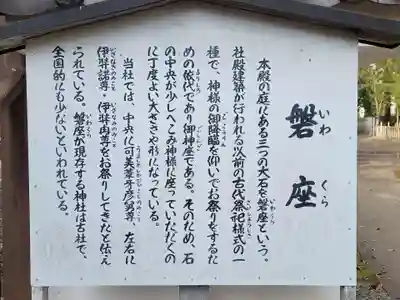 磐座
いわくら
本殿の庭にある三つの大石を磐座という。
社殿建築が行われる以前の古代祭祀様式の一
種で、神様の御降臨を仰いでお祭りをするた
めの依代であり御神座である。そのため、石
の中央が少しへこみ神様に座っていただくの
に丁度よい大きさや形になっている。
当社では、中央に可美葦牙彦舅尊、左右に
伊弉諾尊・伊弉冉尊をお祭りしてきたと伝え
られている。磐座が現存する神社は古社で、
全国的にも少ないといわれている。